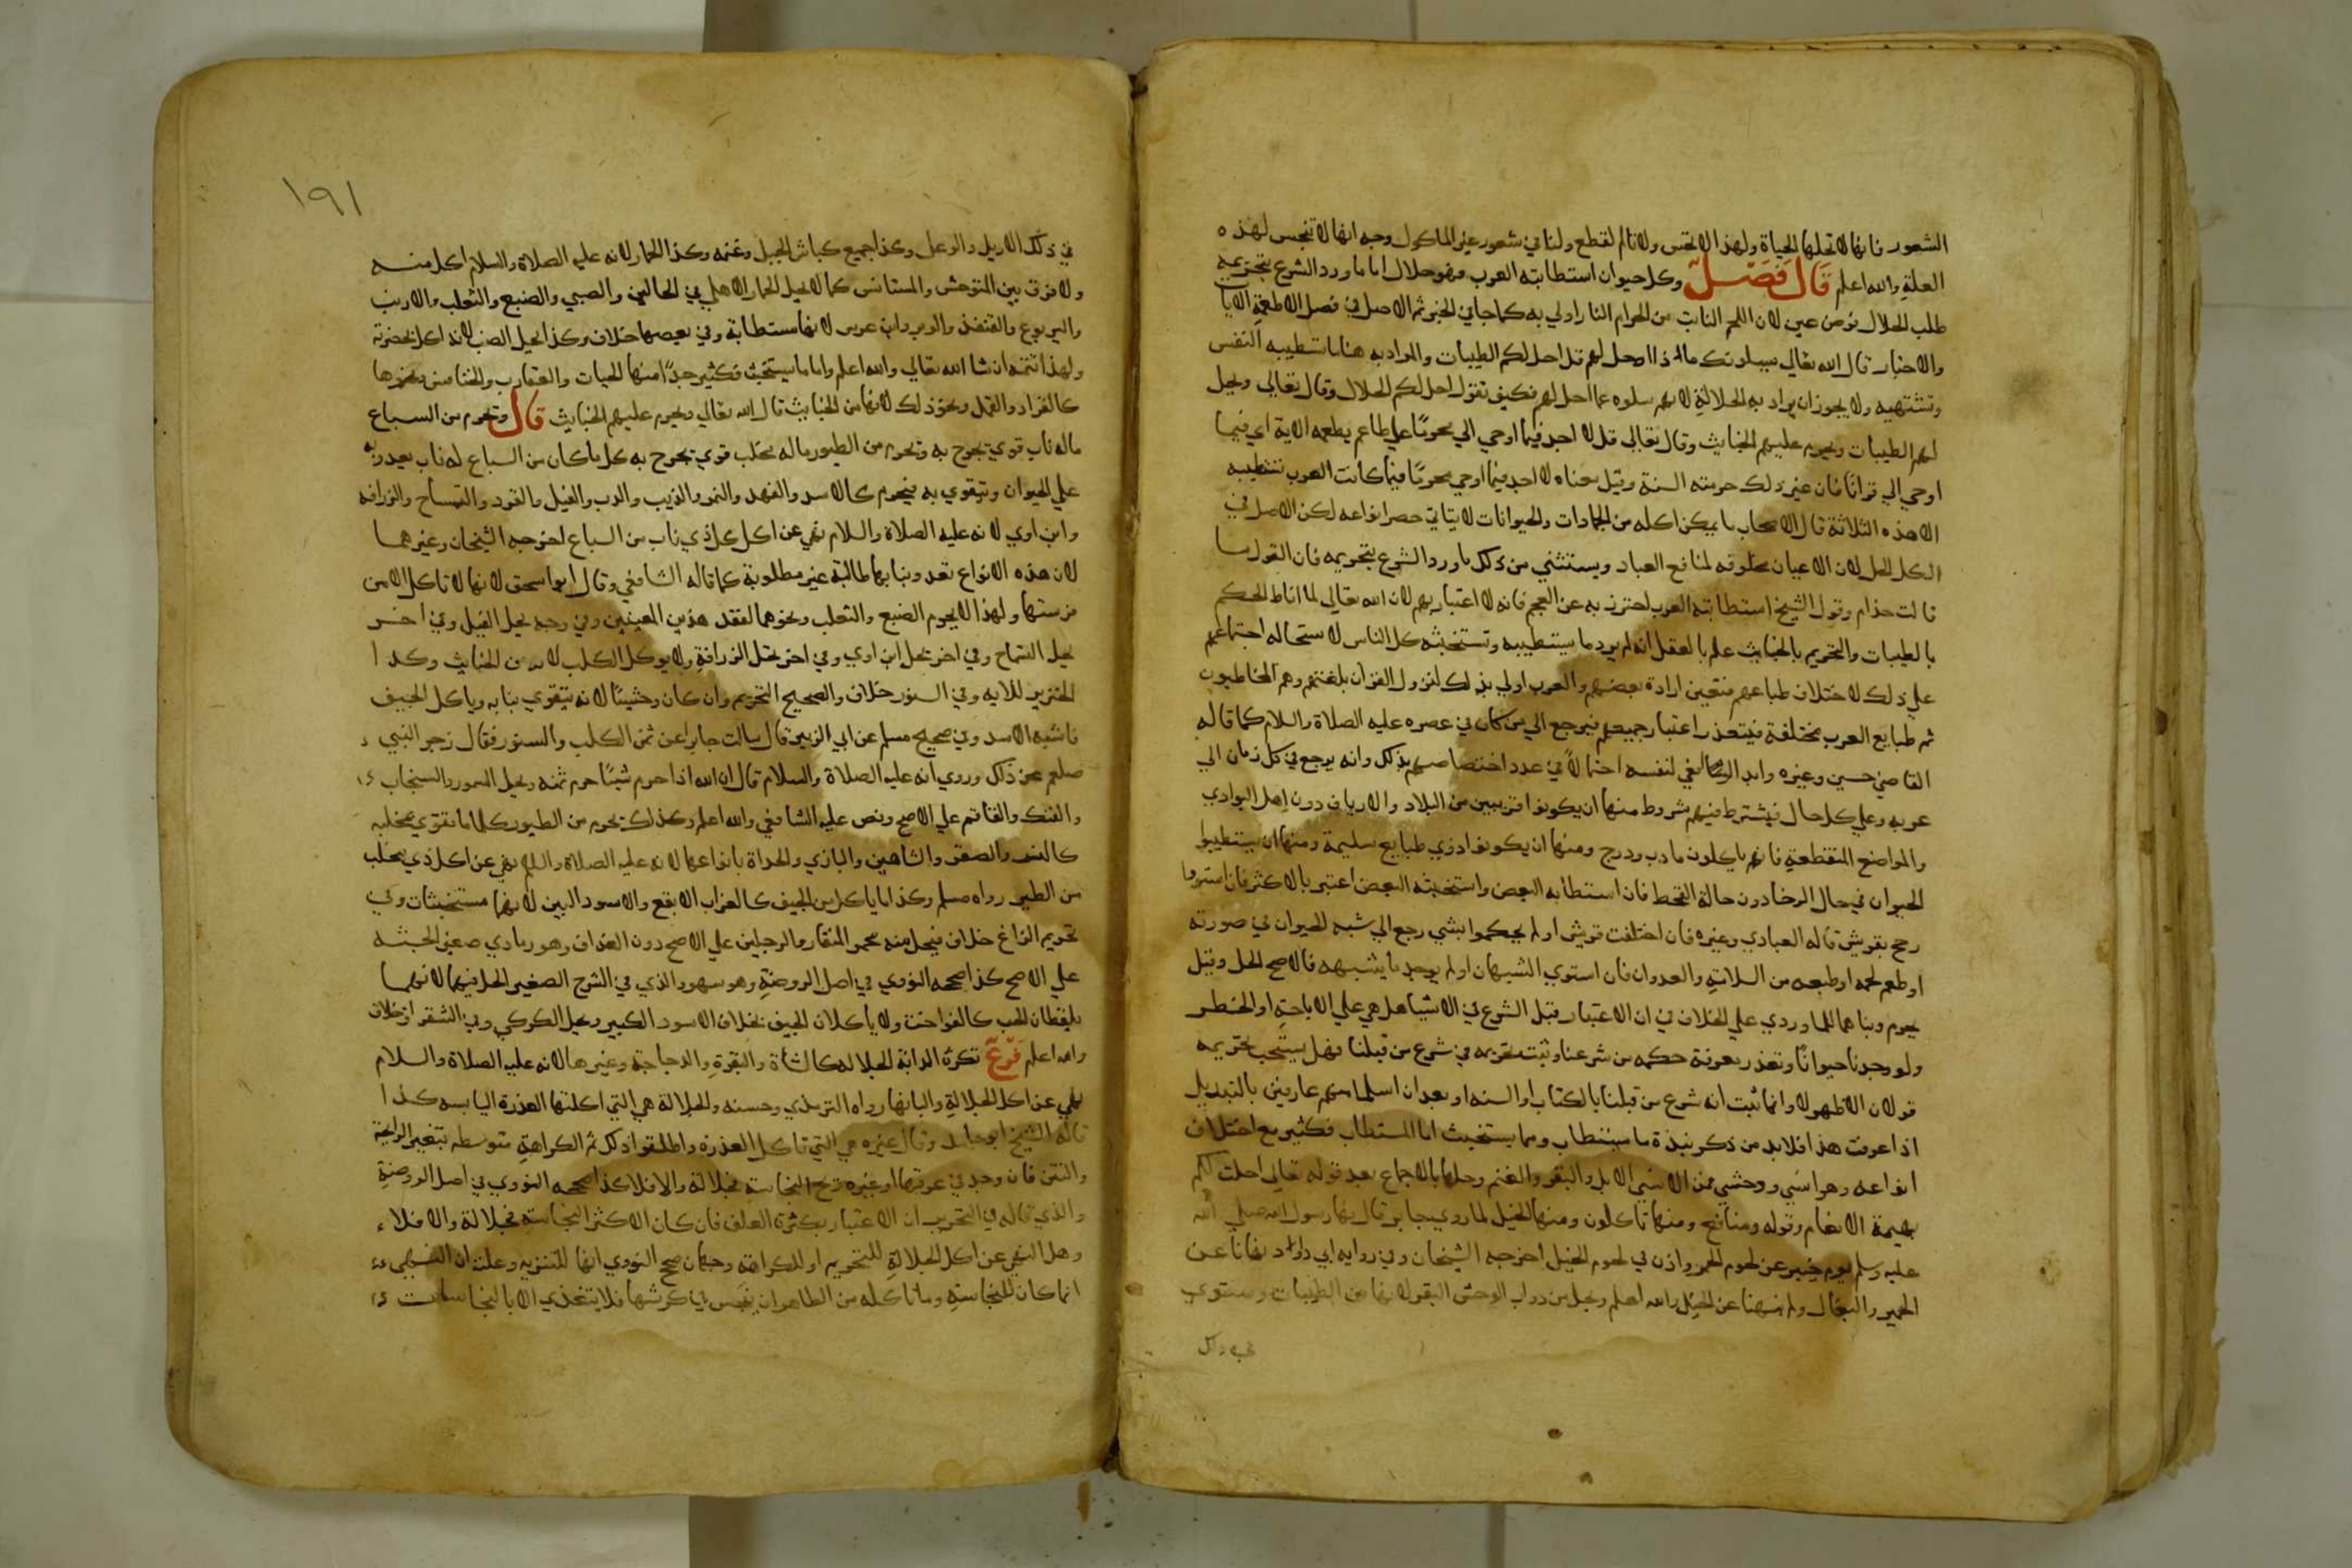 الشعور فانها لا تحلها الحياة ولهذا لا تحس ولا تالم لقطع ولنا في شعور غير الماكول وجه انها لا تنجس لهذه
العلة والله اعلم قال فصل وكل حيوان استطابته العرب فهو حلال الا ما ورد الشرع بتحريمه
طلب الحلال فرض عين لان اللحم النابت من الحرام النار اولى به كما جا في الخبر ثم الاصل في فصل الاطعمة الايات
والاخبار قال الله تعالي يسيلونك ماذا احل لهم قل احل لكم الطيبات والمراد به هنا ما تستطيبه النفس
وتشتهيه ولا يجوز ان يراد به الحلال لانهم سلوه عما احل لهم فكيف تقول احل لكم الحلال وقال تعالي ويحل
لهم الطيبات ويحرم عليهم الخبايث وقال تعالي قل لا اجد فيما اوحي الي محرما علي طاعم يطعمه الاية اي فيما
اوحي الي قرانا فان غير ذلك حرمته السنة وقيل معناه لا اجد فيما اوحي محرما فيما كانت العرب تستطيبه
الا هذه الثلاثة قال الاصحاب ما يمكن اكله من الجمادات والحيوانات لا يتاتي حصر انواعه لكن الاصل في
الكل الحل لان الاعيان مخلوقه لمنافع العباد ويستثني من ذلك ما ورد الشرع بتحريمه فان القول ما
قالت حذام وقول الشيخ استطابته العرب احترز به عن العجم فانه لا اعتبار بهم لان الله تعالي لما اناط الحكم
بالطيبات والتحريم بالخبايث علم بالعقل انه لم يرد ما يستطيبه وتستخبثه كل الناس لاستحاله اجتماعهم
علي ذلك لاختلاف طباعهم فتعين ارادة بعضهم والعرب اولي بذلك لنزول القران بلغتهم وهم المخاطبون
ثم طبايع العرب مختلفة فيتعذر اعتبار جميعهم فيرجع الي من كان في عصره عليه الصلاة والسلام كما قاله
القاضي حسين وغيره وابدا الرافعي لنفسه احتمالا في عدد اختصاصهم بذلك وانه يرجع في كل زمان الي
عربه وعلي كل حال فيشترط فيهم شروط منها ان يكونوا قريبين من البلاد والارياف دون اهل البوادي
والمواضع المنقطعة فانهم ياكلون ما دب ودرج ومنها ان يكونوا ذوي طبايع سليمة ومنها ان يستطيبوا
الحيوان في حال الرخا دون حالة القحط فان استطابه البعض واستخبثه البعض اعتبر بالاكثر فان استووا
رجح بقريش قاله العبادي وغيره فان اختلفت قريش او لم يحكموا بشي رجع الي شبه الحيوان في صورته
او طعم لحمه او طبعه من السلامة والعدوان فان استوي الشبهان او لم يوجد ما يشبهه فالاصح الحل وقيل
يحرم وبناهما الماوردي علي الخلاف في ان الاعتبار قبل الشرع في الاشيا هل هي علي الاباحة او الحظر
ولو وجدنا حيوانا وتعذر معرفة حكمه من شرعنا وثبت تحريمه في شرع من قبلنا فهل يستصحب تحريمه
قولان الاظهر لا وانما ثبت انه شرع من قبلنا بالكتاب او السنه او بعدان اسلما منهم عارفين بالتبديل
اذا عرفت هذا فلابد من ذكر نبذة ما يستطاب ومما يستخبث اما المستطاب فكثير مع اختلاف
انواعه وهو انسي ووحشي فمن الانسي الابل والبقر والغنم وحلها بالاجماع بعد قوله تعالي احلت لكم
بهيمة الانعام وقوله ومنافع ومنها تاكلون ومنها الخيل لما روي جابر قال نهانا رسول الله صلي الله
عليه وسلم يوم خيبر عن لحوم الحمر واذن في لحوم الخيل اخرجه الشيخان وفي روايه ابي داود نهانا عن
الحمير والبغال ولم ينهنا عن الخيل والله اعلم ويحل من دواب الوحش البقر لانها من الطيبات ويستوي
في ذلك
١٩١
في ذلك الايل والوعل وكذا جميع كباش الجبل وغنمه وكذا الحمار لانه عليه الصلاة والسلام اكل منه
ولا فرق بين المتوحش والمستانس كما لا يحل الحمار الاهلي في الحالين والضبي والضبع والثعلب والارنب
واليربوع والقنفذ والوبر وابن عرس لانها مستطابة وفي بعضها خلاف وكذا يحل الضب لانه اكل بحضرته
ولهذا تتمة ان شا الله تعالي والله اعلم واما ما يستخبث فكثير جدا منها الحيات والعقارب والخنافس ونحوها
كالقراد والقمل ونحو ذلك لانها من الخبايث قال الله تعالي ويحرم عليهم الخبايث قال وتحرم من السباع
ماله ناب قوي يجرح به وتحرم من الطيور ماله مخلب قوي يجرح به كل ما كان من السباع له ناب يعدو به
علي الحيوان ويتقوي به فيحرم كالاسد والفهد والنمر والذيب والدب والفيل والقرد والتمساح والزرافه
وابن اوي لانه عليه الصلاة والسلام نهي عن اكل كل ذي ناب من السباع اخرجه الشيخان وغيرهما
لان هذه الانواع تعدو بنابها طالبة غير مطلوبة كما قاله الشافعي وقال ابو اسحق لانها لا تاكل الا من
فرستها ولهذا لا يحرم الضبع والثعلب ونحوهما لفقد هذين المعنيين وفي وجه يحل الفيل وفي اخر
يحل التمساح وفي اخر يحل ابن اوي وفي اخر تحل الزرافة ولا يوكل الكلب لانه من الخبايث وكذا
الخنزير للايه وفي السنور خلاف والصحيح التحريم وان كان وحشيا لانه يتقوي بنابه وياكل الجيف
فاشبه الاسد وفي صحيح مسلم عن ابي الزبير قال سالت جابرا عن ثمن الكلب والسنور فقال زجر النبي
صلعم عن ذلك وروي انه عليه الصلاة والسلام قال ان الله اذا حرم شيئا حرم ثمنه ويحل السمور والسنجاب
والفنك والقاقم علي الاصح ونص عليه الشافعي والله اعلم وكذلك يحرم من الطيور كلما ما يتقوي بمخلبه
كالنسر والصقر والشاهين والبازي والحداة بانواعها لانه عليه الصلاة والسلام نهي عن اكل ذي مخلب
من الطير رواه مسلم وكذا ما ياكل من الجيف كالغراب الابقع والاسود البين لانهما مستخبثات وفي
تحريم الزاغ خلاف فيحل منه محمر المنقار والرجلين علي الاصح دون الغداف وهو رمادي صغير الجثه
علي الاصح كذا صححه النووي في اصل الروضة وهو سهو والذي في الشرح الصغير الحل فيهما لانهما
يلقطان الحب كالفواخت ولا ياكلان الجيف بخلاف الاسود الكبير ويحل الكركي وفي الشقراق خلاف
والله اعلم فرع تكره الدابة الجلاله كالشاة والبقرة والدجاجة وغيرها لانه عليه الصلاة والسلام
نهي عن اكل الجلالة والبانها رواه الترمذي وحسنه والجلالة هي التي اكلتها العذرة اليابسه كذا
قاله الشيخ ابو حامد وقال غيره هي التي تاكل العذرة واطلقوا ذلك ثم الكراهة منوطه بتغير الرايحة
والنتن فان وجد في عرقها او غيره ريح النجاسة فجلالة والا فلا كذا صححه النووي في اصل الروضة
والذي قاله في التحرير ان الاعتبار بكثرة العلف فان كان الاكثر النجاسة فجلالة والا فلا
وهل النهي عن اكل الجلالة للتحريم او للكراهة وجهان صحح النووي انها للتنزيه وعلله ان النهي
انما كان للنجاسة وما تاكله من الطاهرات ينجس في كرشها فلا يتغذي الا بالنجاسات